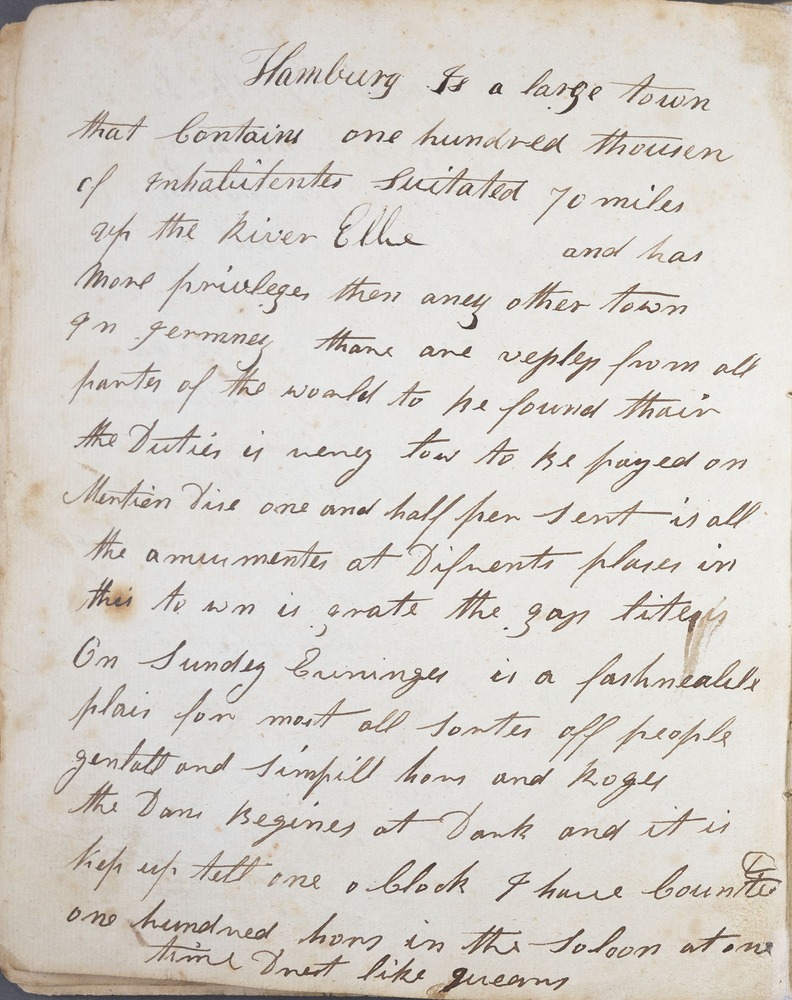 Hamburg Is a large town
that Contains one hundred thousen
of Inhabitentes Suitated 70 miles
up the River Elbe and has
More privileges then aney other town
In germney thare are vesples from all
partes of the woarld to be found thair
the Duties is verey low to be payed on
Merhien Dise one and half per sent is all
the amusmentes at Difrents plases in
this town is grate the
On Sundey Eveninges is a fashneable
plais for most all sortes off people
gentall and simpill hors and Roges
the Dans Begines at Dark and it is
kep up tell one o Clock I have Counted
one hundred hors in the Soloon at one
time Drest like queans